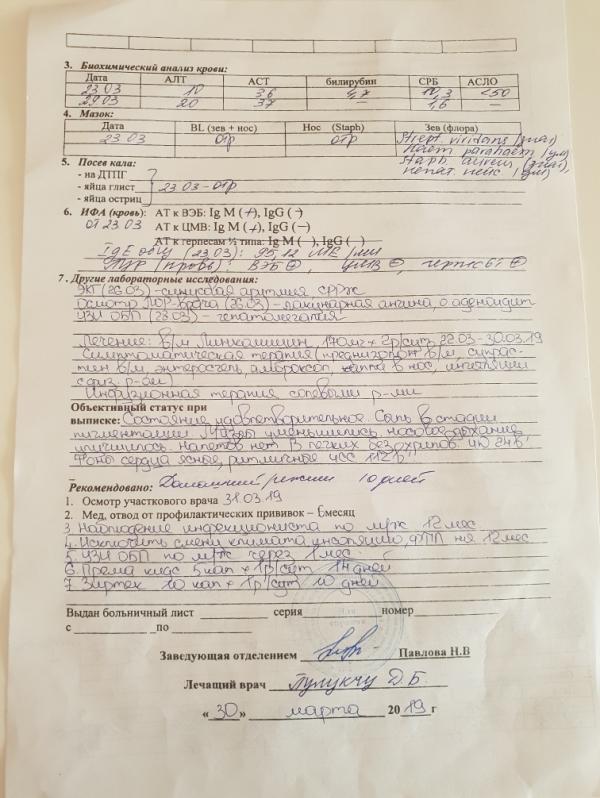 3. Биохимический анализ крови:
Дата АЛТ АСТ билирубин СРБ АСЛО
23.03 10 36 10,3 <50
29.03 20 37 — 1,6 —
4. Мазок:
Дата BL (зев + нос) Нос (Staph) Зев (флора)
23.03 отр отр Strept. viridans
Haem. parahaem
Staph. aureus
5. Посев кала:
- на ДТПГ
- яйца глист 23.03-отр
- яйца остриц
6. ИФА (кровь): АТ к ВЭБ: Ig M (+), IgG (-)
от 23.03 АТ к ЦМВ: Ig M (+), IgG (-)
АТ к герпесам ½ типа: Ig M ( ), IgG ( )
IgE общ (23.03): 95,12 МЕ/мл
ПЦР (кровь): ВЭБ ЦМВ герпес 6т
7. Другие лабораторные исследования:
ЭКГ (26.03) -синусовая аритмия СРРЖ
Осмотр ЛОР-врача (26.03) -лакунарная ангина, о аденоидит
УЗИ ОБП (23.03) - гепатомегалия
Лечение: в/м Линкомицин 170мг х 2р/сут 22.03-30.03.19
Симптоматическая терапия (преднизолон в/м, супрас-
тин в/м, энтеросгель, амброксол, капли в нос, ингаляции
с физ. р-ом)
Инфузионная терапия солевыми р-ми
Объективный статус при
выписке: Состояние удовлетворительное. Сыпь в стадии
пигментации. уменьшились, носовое дыхание
улучшилось. Налетов нет. В легких без хрипов. ЧД 24 в'
Тоны сердца ясные, ритмичные ЧСС 112 в'
Рекомендовано: Домашний режим 10 дней
1. Осмотр участкового врача 31.03.19
2. Мед, отвод от профилактических прививок – 6месяц
3. Наблюдение инфекциониста по м/ж 12 мес
4. Исключить смены климата инсоляцию, ФТЛ на 12 мес
5. УЗИ ОБП по м/ж через 1 мес.
6. Према кидс 5 кап х 1р/сут 14 дней
7. Зиртек 10 кап х 1р/сут 10 дней
Выдан больничный лист серия номер
с по
Заведующая отделением Павлова Н.В
Лечащий врач Пулукчу Д.Б.
«30» марта 2019г